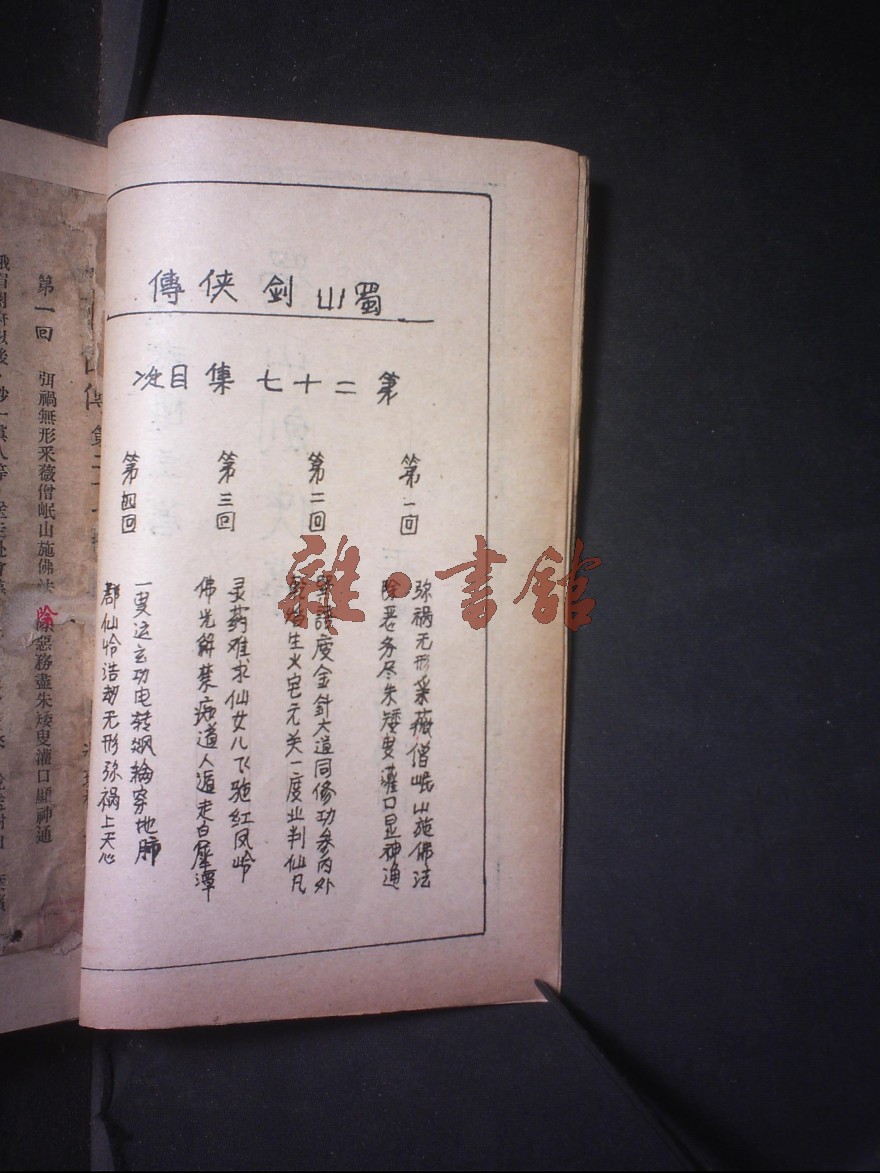 蜀山剑侠傳
第二十七集目次
第一回
弥祸无形采薇僧岷山施佛法
除恶务尽朱矮叟灌口显神通
第二回
度金針大道同修功参内外
生火宅元关一度业判仙凡
第三回
灵药难求仙女儿飞驰红凤岭
佛光解禁痴道人遁走白犀潭
第四回
一叟运玄功电转飙輪穿地肺
群仙怜浩劫无形弥祸上天心
雜·書館
第一回 弭禍無形采薇僧岷山施佛法 除惡務盡朱矮叟灌口顯神通
除